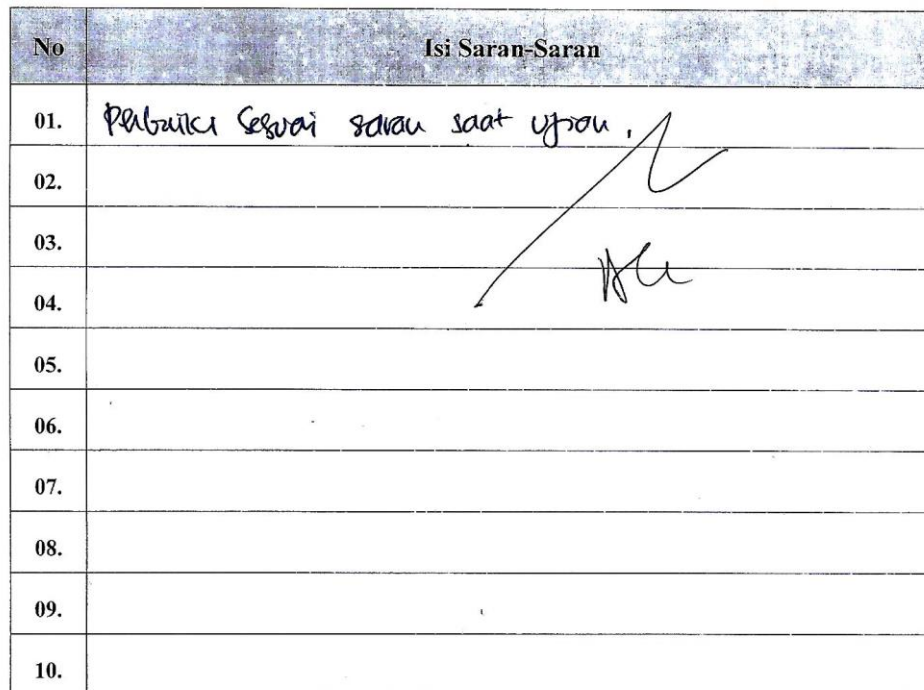 No Isi Saran-Saran
01. Perbaiki sesuai saran saat ujian.
02.
03.
04.
05.
06.
07.
08.
09.
10.